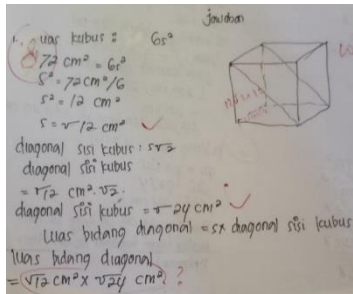 Jawaban
1. Luas kubus : 6s²
8
72 cm² = 6s²
s² = 72 cm²/6
s² = 12 cm²
s = √12 cm²
diagonal sisi kubus : s√2
diagonal sisi kubus
= √12 cm². √2.
diagonal sisi kubus = √24 cm²
Luas bidang diagonal = s x diagonal sisi kubus
Luas bidang diagonal
= √12 cm² x √24 cm² ?